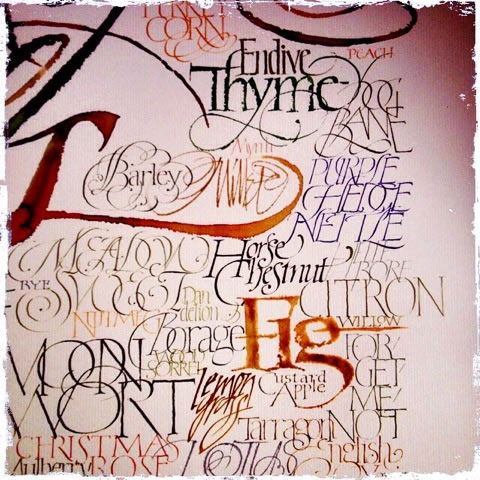 CORN
PEACH
Endive
Thyme
DOG
BANE
Myrrh
Barley
PURPLE
HEDGE
NETTLE
MEADOW
Horse
Chestnut
RYE
SWEET
Dan
delion
CITRON
NUTMEG
Borage
Fig
WILLOW
MOON
WORT
WOOD
SORREL
Lemon
grass
Custard
Apple
FOR
GET
ME
NOT
Tarragon
CHRISTMAS
ROSE
LOTUS
English
Mulberry